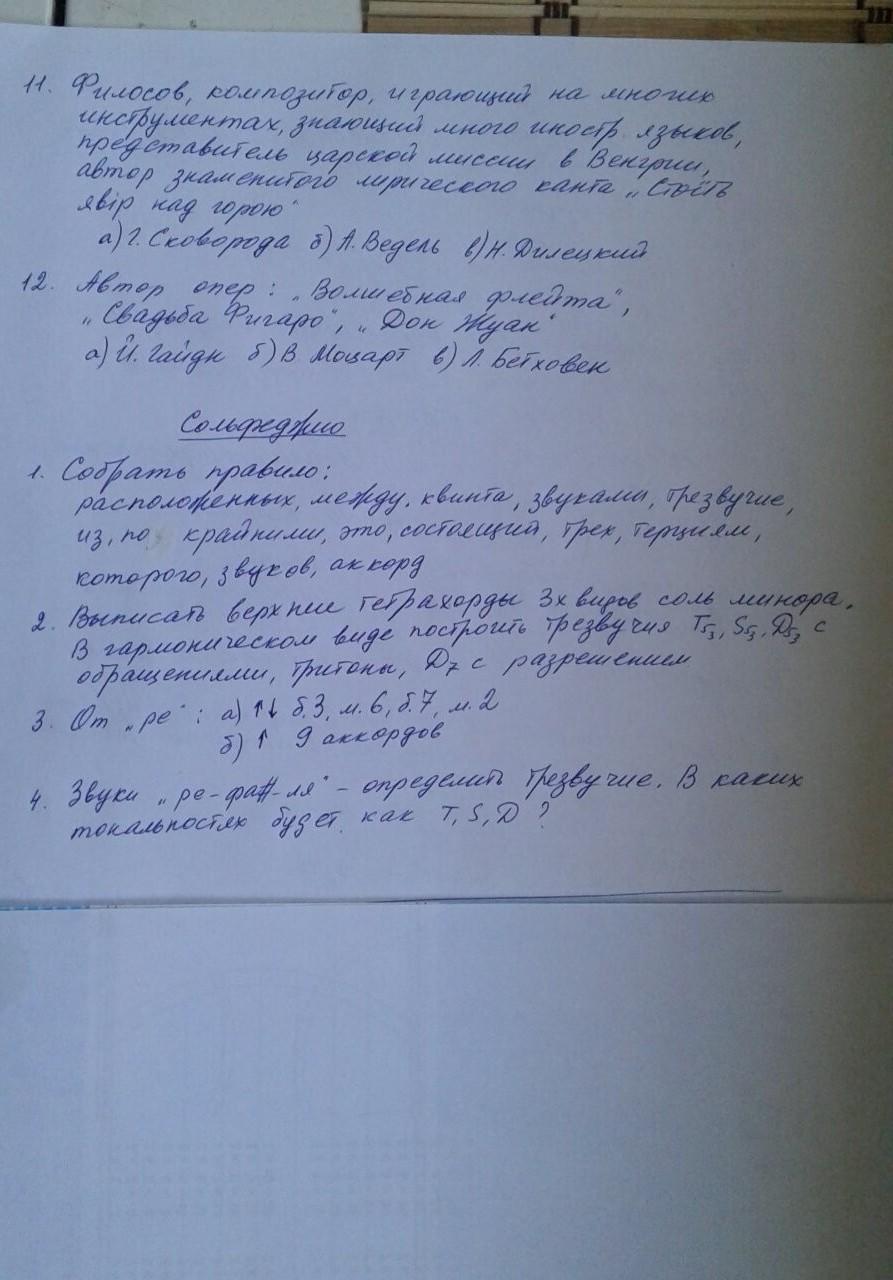 11. Филосов, композитор, играющий на многих
инструментах, знающий много иностр. языков,
представитель царской миссии в Венгрии,
автор знаменитого лирического канта „Стоїть
явір над горою"
а) Г. Сковорода б) А. Ведель в) Н. Дилецкий
12. Автор опер: „Волшебная флейта",
„Свадьба Фигаро", „Дон Жуан"
а) Й. Гайдн б) В Моцарт в) Л. Бетховен
Сольфеджио
1. Собрать правило:
расположенных, между, квинта, звуками, трезвучие,
из, по крайними, это, состоящий, трех, терциям,
которого, звуков, аккорд
2. Выписать верхние тетрахорды 3х видов соль минора.
В гармоническом виде построить трезвучия Т5/3, S5/3, D5/3 с
обращениями, тритоны, D7 с разрешением
3. От „ре": а) ↑↓ б.3, м.6, б.7, м.2
б) ↑ 9 аккордов
4. Звуки „ре-фа#-ля" - определить трезвучие. В каких
тональностях будет как T, S, D ?